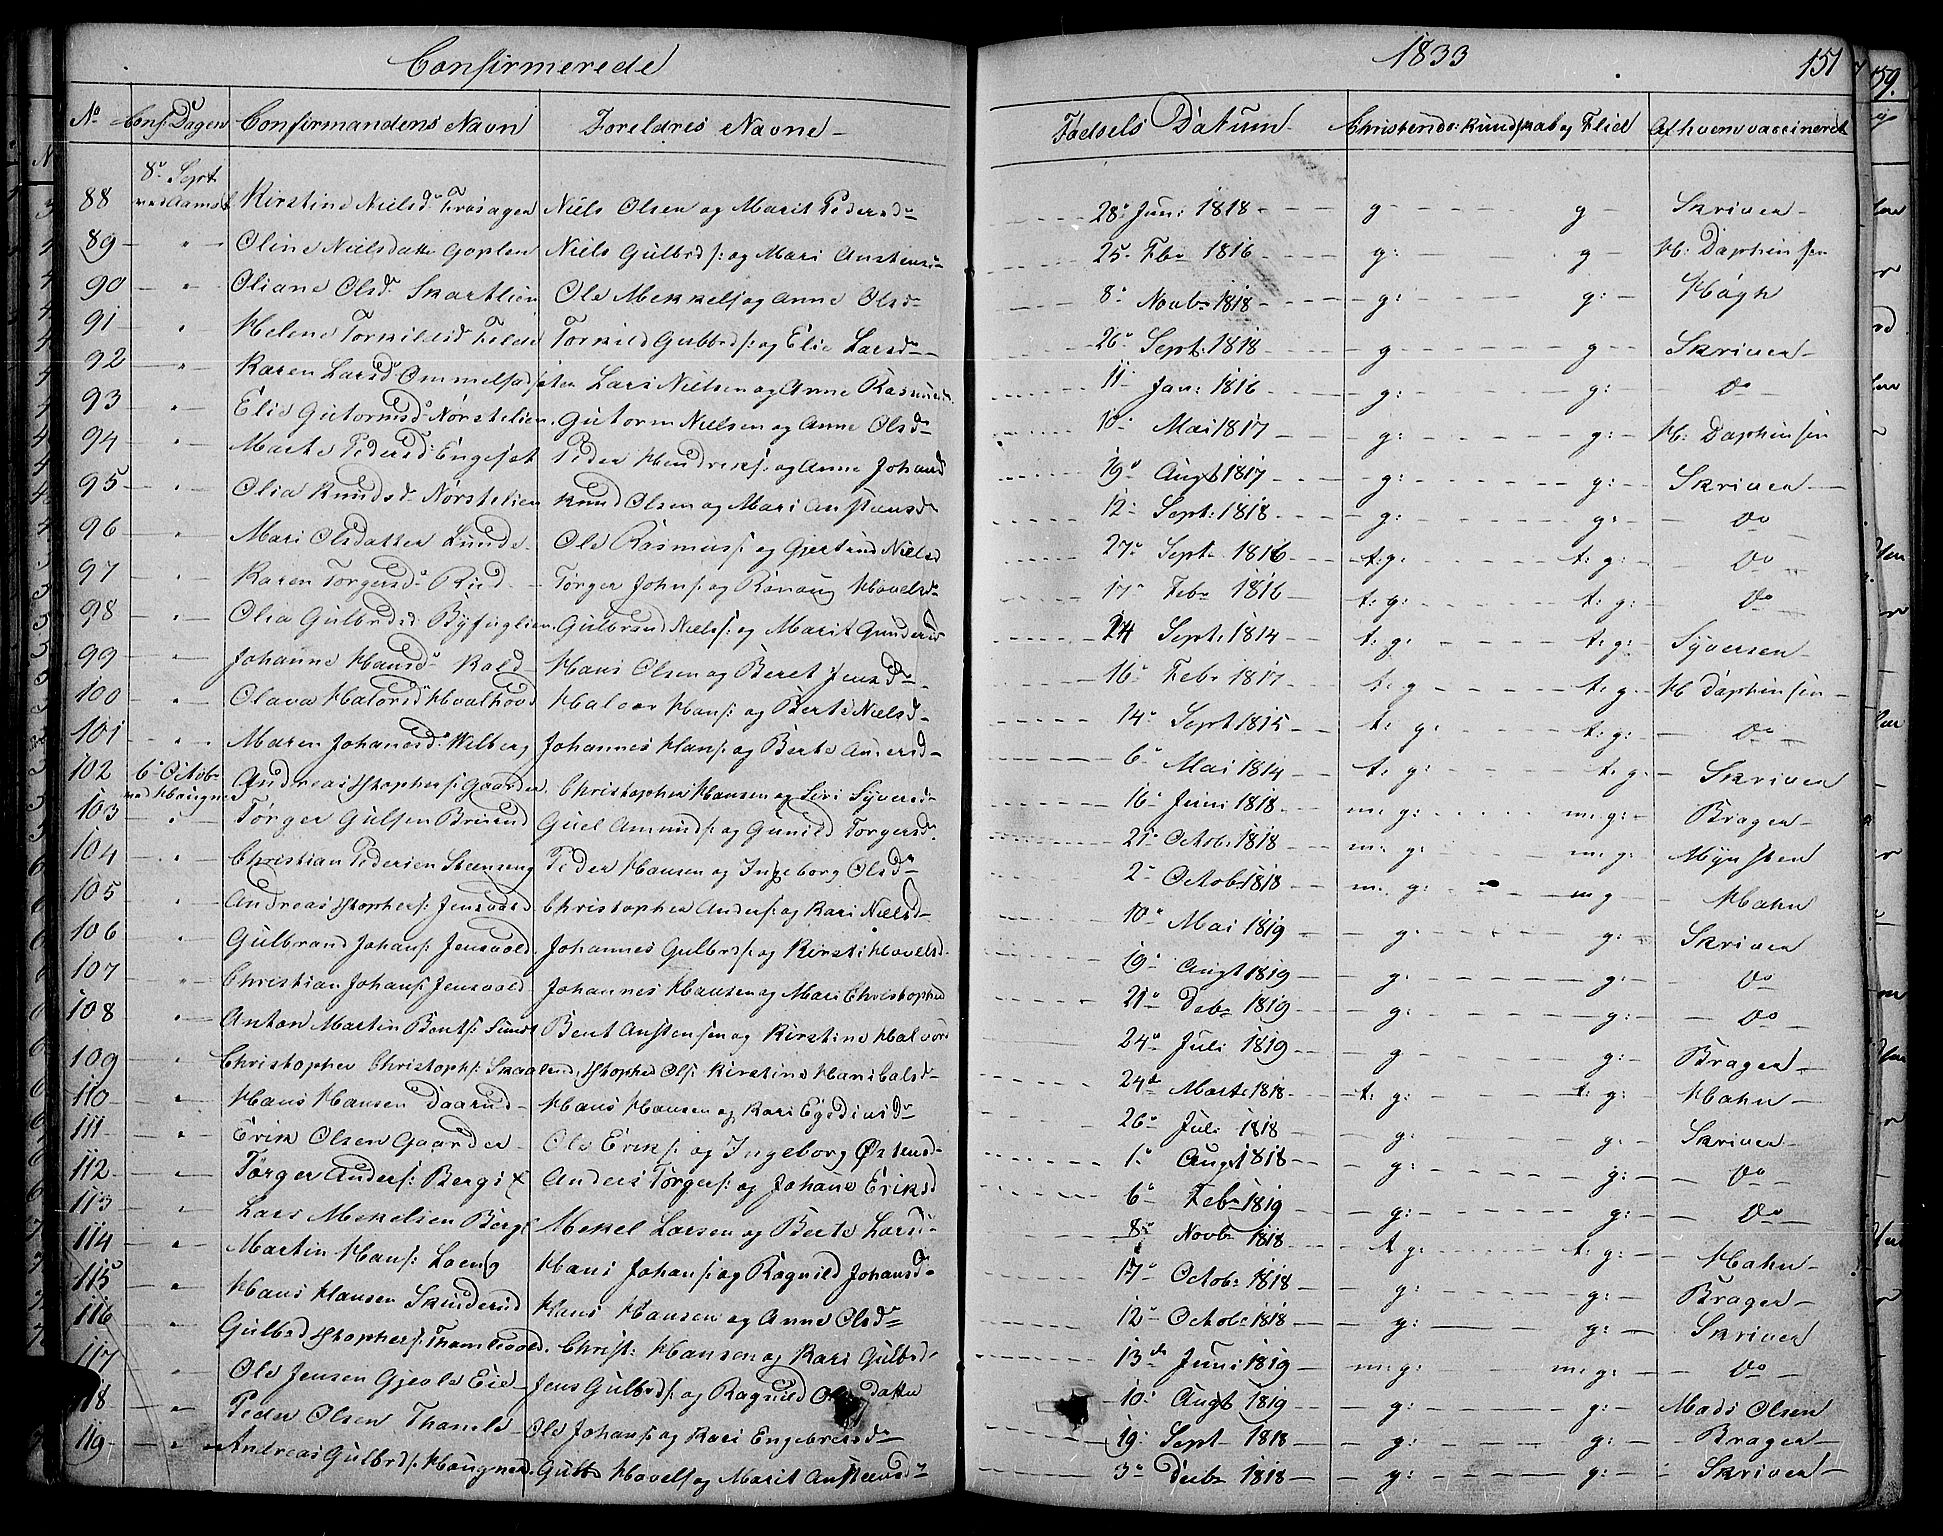 Confirmerede
1833
151
No Conf: Dagen Confirmandens Navn Foreldres Navne
Fødsels Datum Christend: Kundskab og Flid Af hvem vaccineret
8de Sept
88 Kirstine Nielsd: Niels Olsen og Marit Pedersd: 28 Juni 1818 g g Skriver
89 " Oline Nielsdatter Goplen Niels Gulbrds: og Mari 25 Fbr 1816 g: g H: Daphinsen
90 " Oliane Olsd: Skartlien Ole Mekkels: og Anne Olsd: 8 Novbr 1818 g: g: Høgh
91 " Helene Torkildsd: Torkild Gulbrds: og Elie Larsd: 26 Sept: 1818 g g Skriver
92 " Karen Larsd: Lars Nielsen og Anne 11 Jan: 1816 g: g: do
93 " Elie Gutormsd: Nørstelien Gutorm Nielsen og Anne Olsd: 10 Mai 1817 g: g: H: Daphinsen
94 " Marte Pedersd: Engeset Peder Hendriks: og Anne Johansd 19 Augt 1817 g: g: Skriver
95 " Olia Knudsd: Nørstelien Knud Olsen og Mari Anstensd: 12 Sept: 1818 g: g: do
96 " Mari Olsdatter Lunde Ole Rasmus: og Gjertrud Nielsd 27 Sept 1816 t: g: t: g: do
97 " Karen Torgersd: Tørger Johns: og Rønaug Hovelsd: 17 Febr 1816 t: g: t: g: do
98 " Olia Gulbrdsd: Byfuglien Gulbrand Niels: og Marit Gundersd 24 Sept: 1814 t: g: t: g: Syversen
99 " Johanne Hansd: Rold Hans Olsen og Beret Jensd: 16 Febr 1817 t: g t: g H Daphinsen
100 " Olava Halvorsd: Hvalhovd Halvor Hans: og Berte Nielsd: 14 Sept 1815 t: g: t: g: do
101 " Maren Johansd: Welberg Johannes Hans: og Berte Andersd 6 Mai 1814 t: g: t: g: Skriver
102 6te Octobr ved Haugner Andreas Stophers: Gaarder Christopher Hansen og Siri Syversd: 16 Juni 1818 m: g: m: g: Brager
103 " Tørger Gulsen Gul Amunds: og Gunild Torgersd: 21 Octobr 1818 m: g: m: g: Mynsten
104 " Christian Pedersen Steenseng Peder Hansen og Ingeborg Olsd: 2 Octobr 1818 m: g: m g Hahn
105 " Andreas Stophers: Jensvold Christopher Anders: og Kari Nielsd: 10 Mai 1819 g: g: Skriver
106 " Gulbrand Johans: Jensvold Johannes Gulbrds: og Kirsti Hovelsd 19 Augt 1819 g: g: do
107 " Christian Johans: Jensvold Johannes Hansen og Mari Christophsd 21 Debr 1819 g: g: do
108 " Anton Martin Bents: Bent Anstensen og Kirstine Halvors 24 Juli 1819 g g: Brager
109 " Christopher Christophs: Stopher Ols: Kirstine Hanibalsd: 24 Marts 1818 t: g: t: g: Hahn
110 " Hans Hansen Daarud Hans Hansen og Kari Egediusd: 26 Juli 1818 g: g: Skriver
111 " Erik Olsen Gaarder Ole Eriks: og Ingeborg Østensd: 1 Augt 1818 g: g: do
112 " Tørger Anders: Anders Tørgers: og Johane Eriksd 6 Febr 1819 g: g: do
113 " Lars Mekelsen Berge Mekel Larsen og Berte Larsd: 8 Novbr 1818 t g: t: g: Hahn
114 " Martin Hans: Loeng Hans Johans: og Ragnild Johansd: 17 Octobr 1818 g: g: Brager
115 " Hans Hansen Skinderud Hans Hansen og Anne Olsd: 12 Octobr 1818 g: g: Skriver
116 " Gulbrd Stophers: Thomlevold Christ: Hansen og Kari Gulbrd: 13 Juni 1819 m: g: m: g: do
117 " Ole Jensen Gjevle Eie Jens Gulbrds: og Ragnild datter 10 Augt 1819 g: g: Mads Olsen
118 " Peder Olsen Thomle Ole Johans: og Kari Engebretsd: 19 Sept 1818 g: g: Brager
119 " Andreas Gulbrds: Haugner Gulbr Hovels: og Marit Anstensd: 3 Decbr 1818 g: g: Skriver